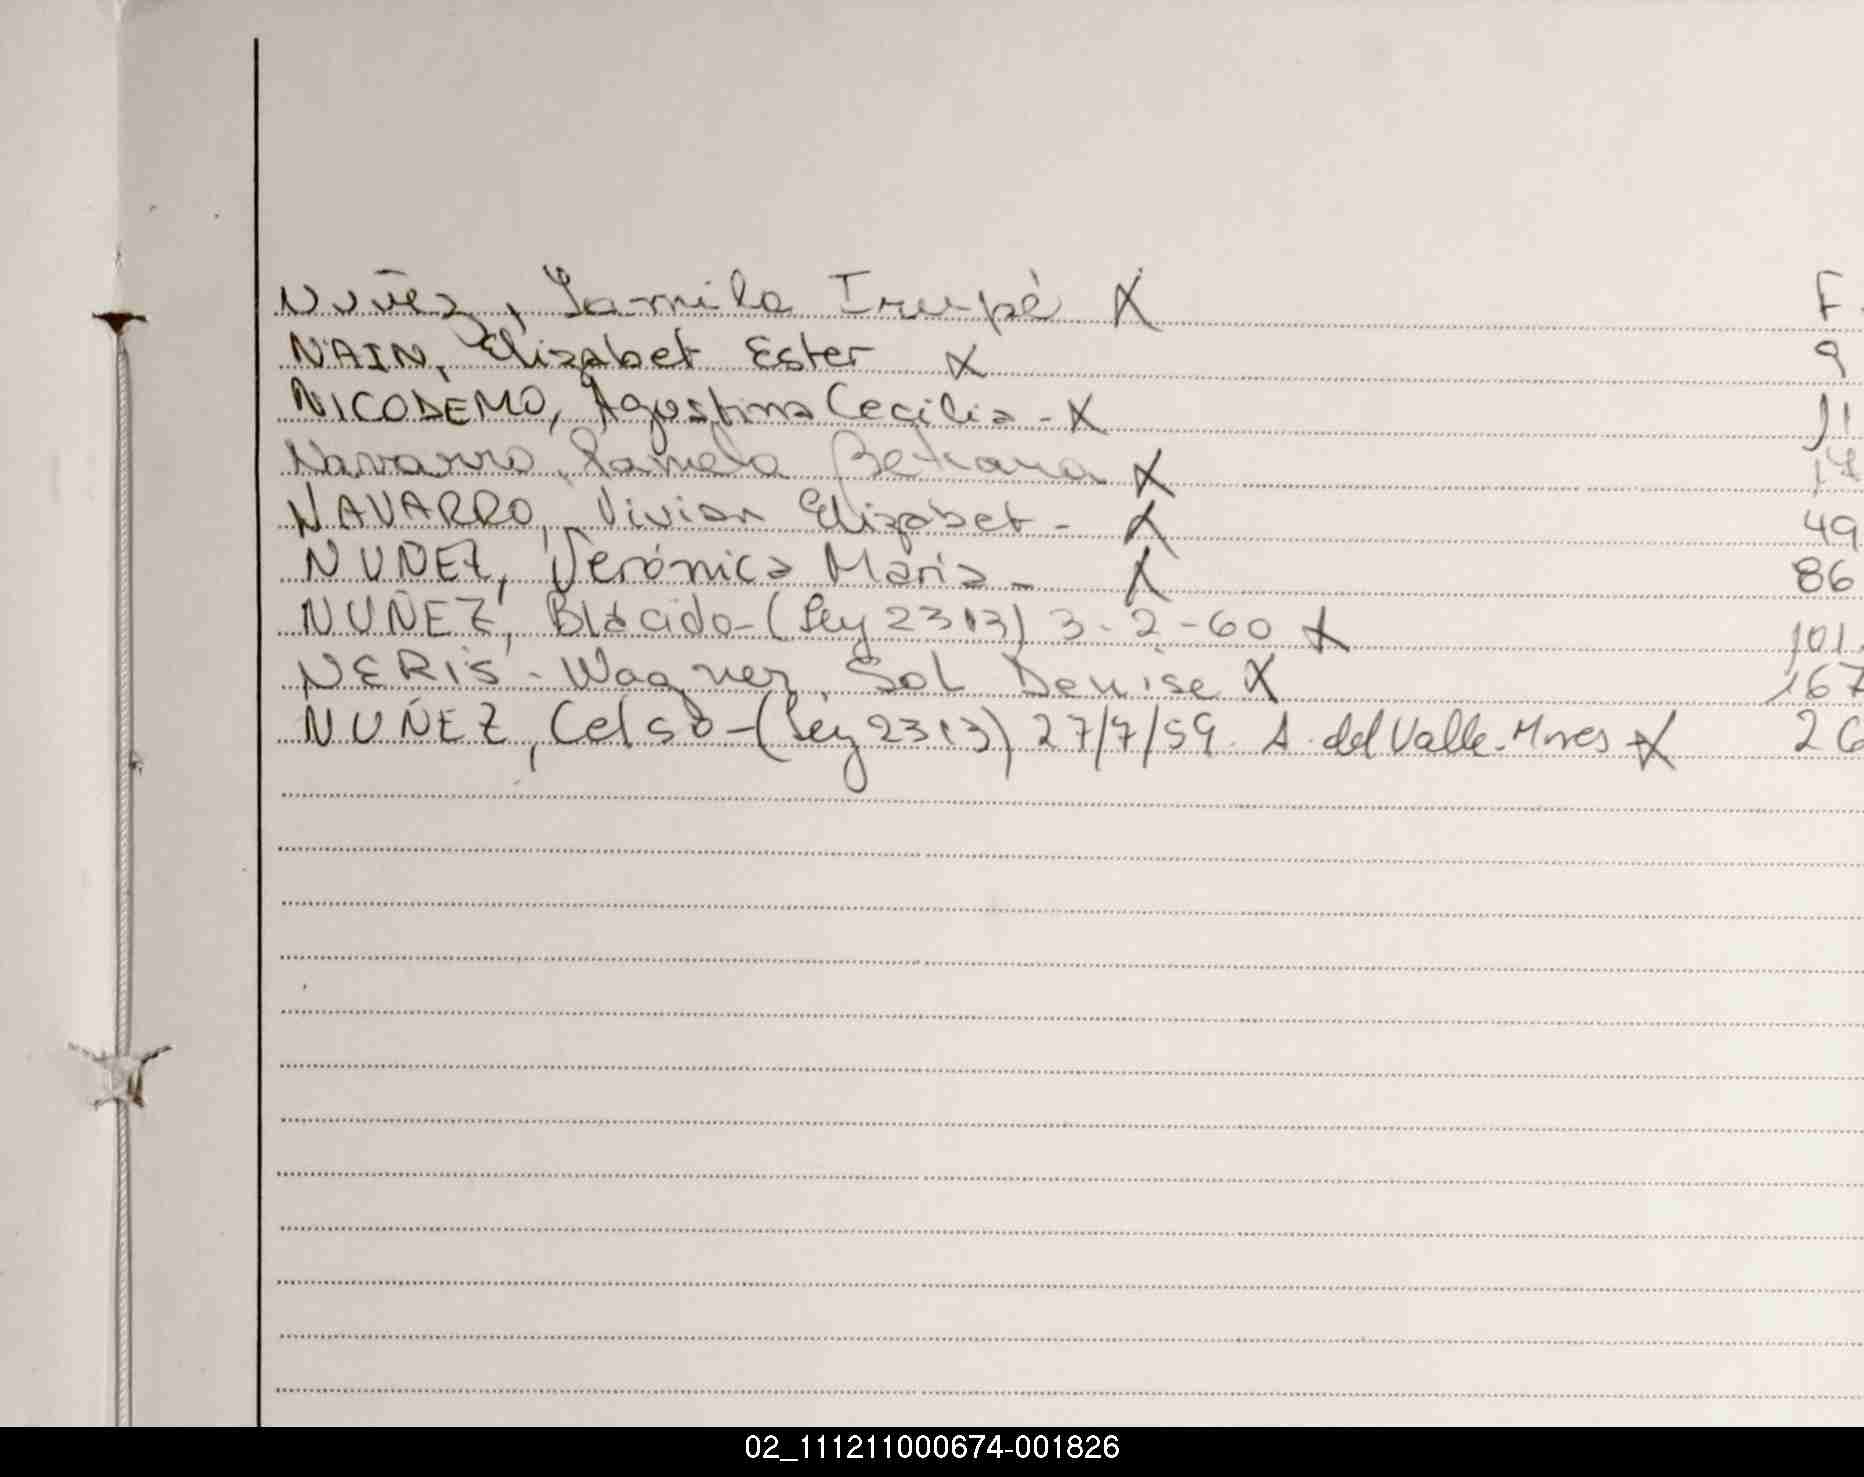 Nuñez, Yamila Irupé X F.
NAIN, Elizabet Ester X 9
NICODEMO, Agustina Cecilia - X 11
Navarro, Pamela Betiana X 14
NAVARRO, Vivian Elizabet - X 49
NUÑEZ, Verónica Maria - X 86
NUÑEZ, Blácido - (Ley 2313) 3-2-60 X 101.
NERIS - Wagner, Sol Denise X 167
NUÑEZ, Celso - (Ley 2313) 27/7/59. A. del Valle - Mnes X 26
02_111211000674-001826